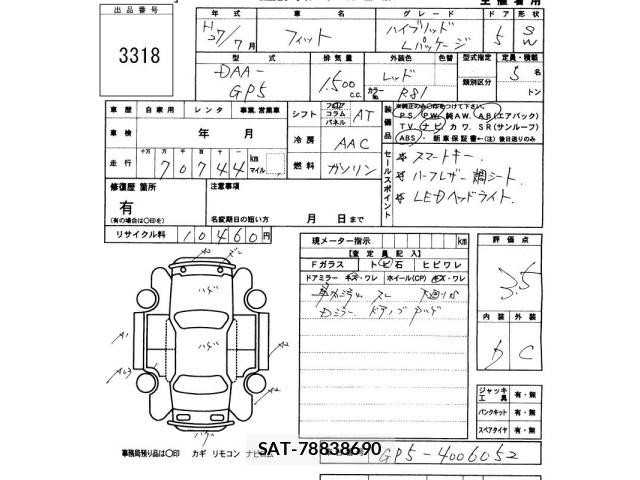 出品番号
3318
年式 車名 グレード ドア 形状
H27/7月 フィット ハイブリッド Lパッケージ 5 SW
型式 排気量 外装色 色替 型式指定 定員・積載
DAA-GP5 1,500 c.c. レッド 類別区分 5名
カラーNo. R81 トン
車歴 自家用 レンタ 事業、営業車
シフト フロア コラム パネル AT
装備品
※純正のみ○印をつけて下さい。
PS PW 純AW. AB(エアバック)
TV ナビ カワ. SR(サンルーフ)
ABS. 新車保証書←(注)後日送りのみ
車検 年 月
冷房 AAC
走行 十万 万 千 百 十 70744 km マイル
燃料 ガソリン
セールスポイント
☆ スマートキー.
☆ ハーフレザー調シート.
☆ LEDヘッドライト.
修復歴 箇所
有
(有の場合は○印を)
注意事項
名変期日の短い方 月 日まで
リサイクル料 10460円
現メーター指示 km
【査定員記入】
Fガラス トビ石 ヒビワレ
ドアミラー キズ・ワレ ホイール(CP) キズ・ワレ
評価点
3.5
内装 外装
C
A1
A2
ジャッキ 工具 有・無
パンクキット 有・無
スペアタイヤ 有・無
事務局預り品は○印 カギ リモコン ナビロム
SAT-78838690
GP5-4006052